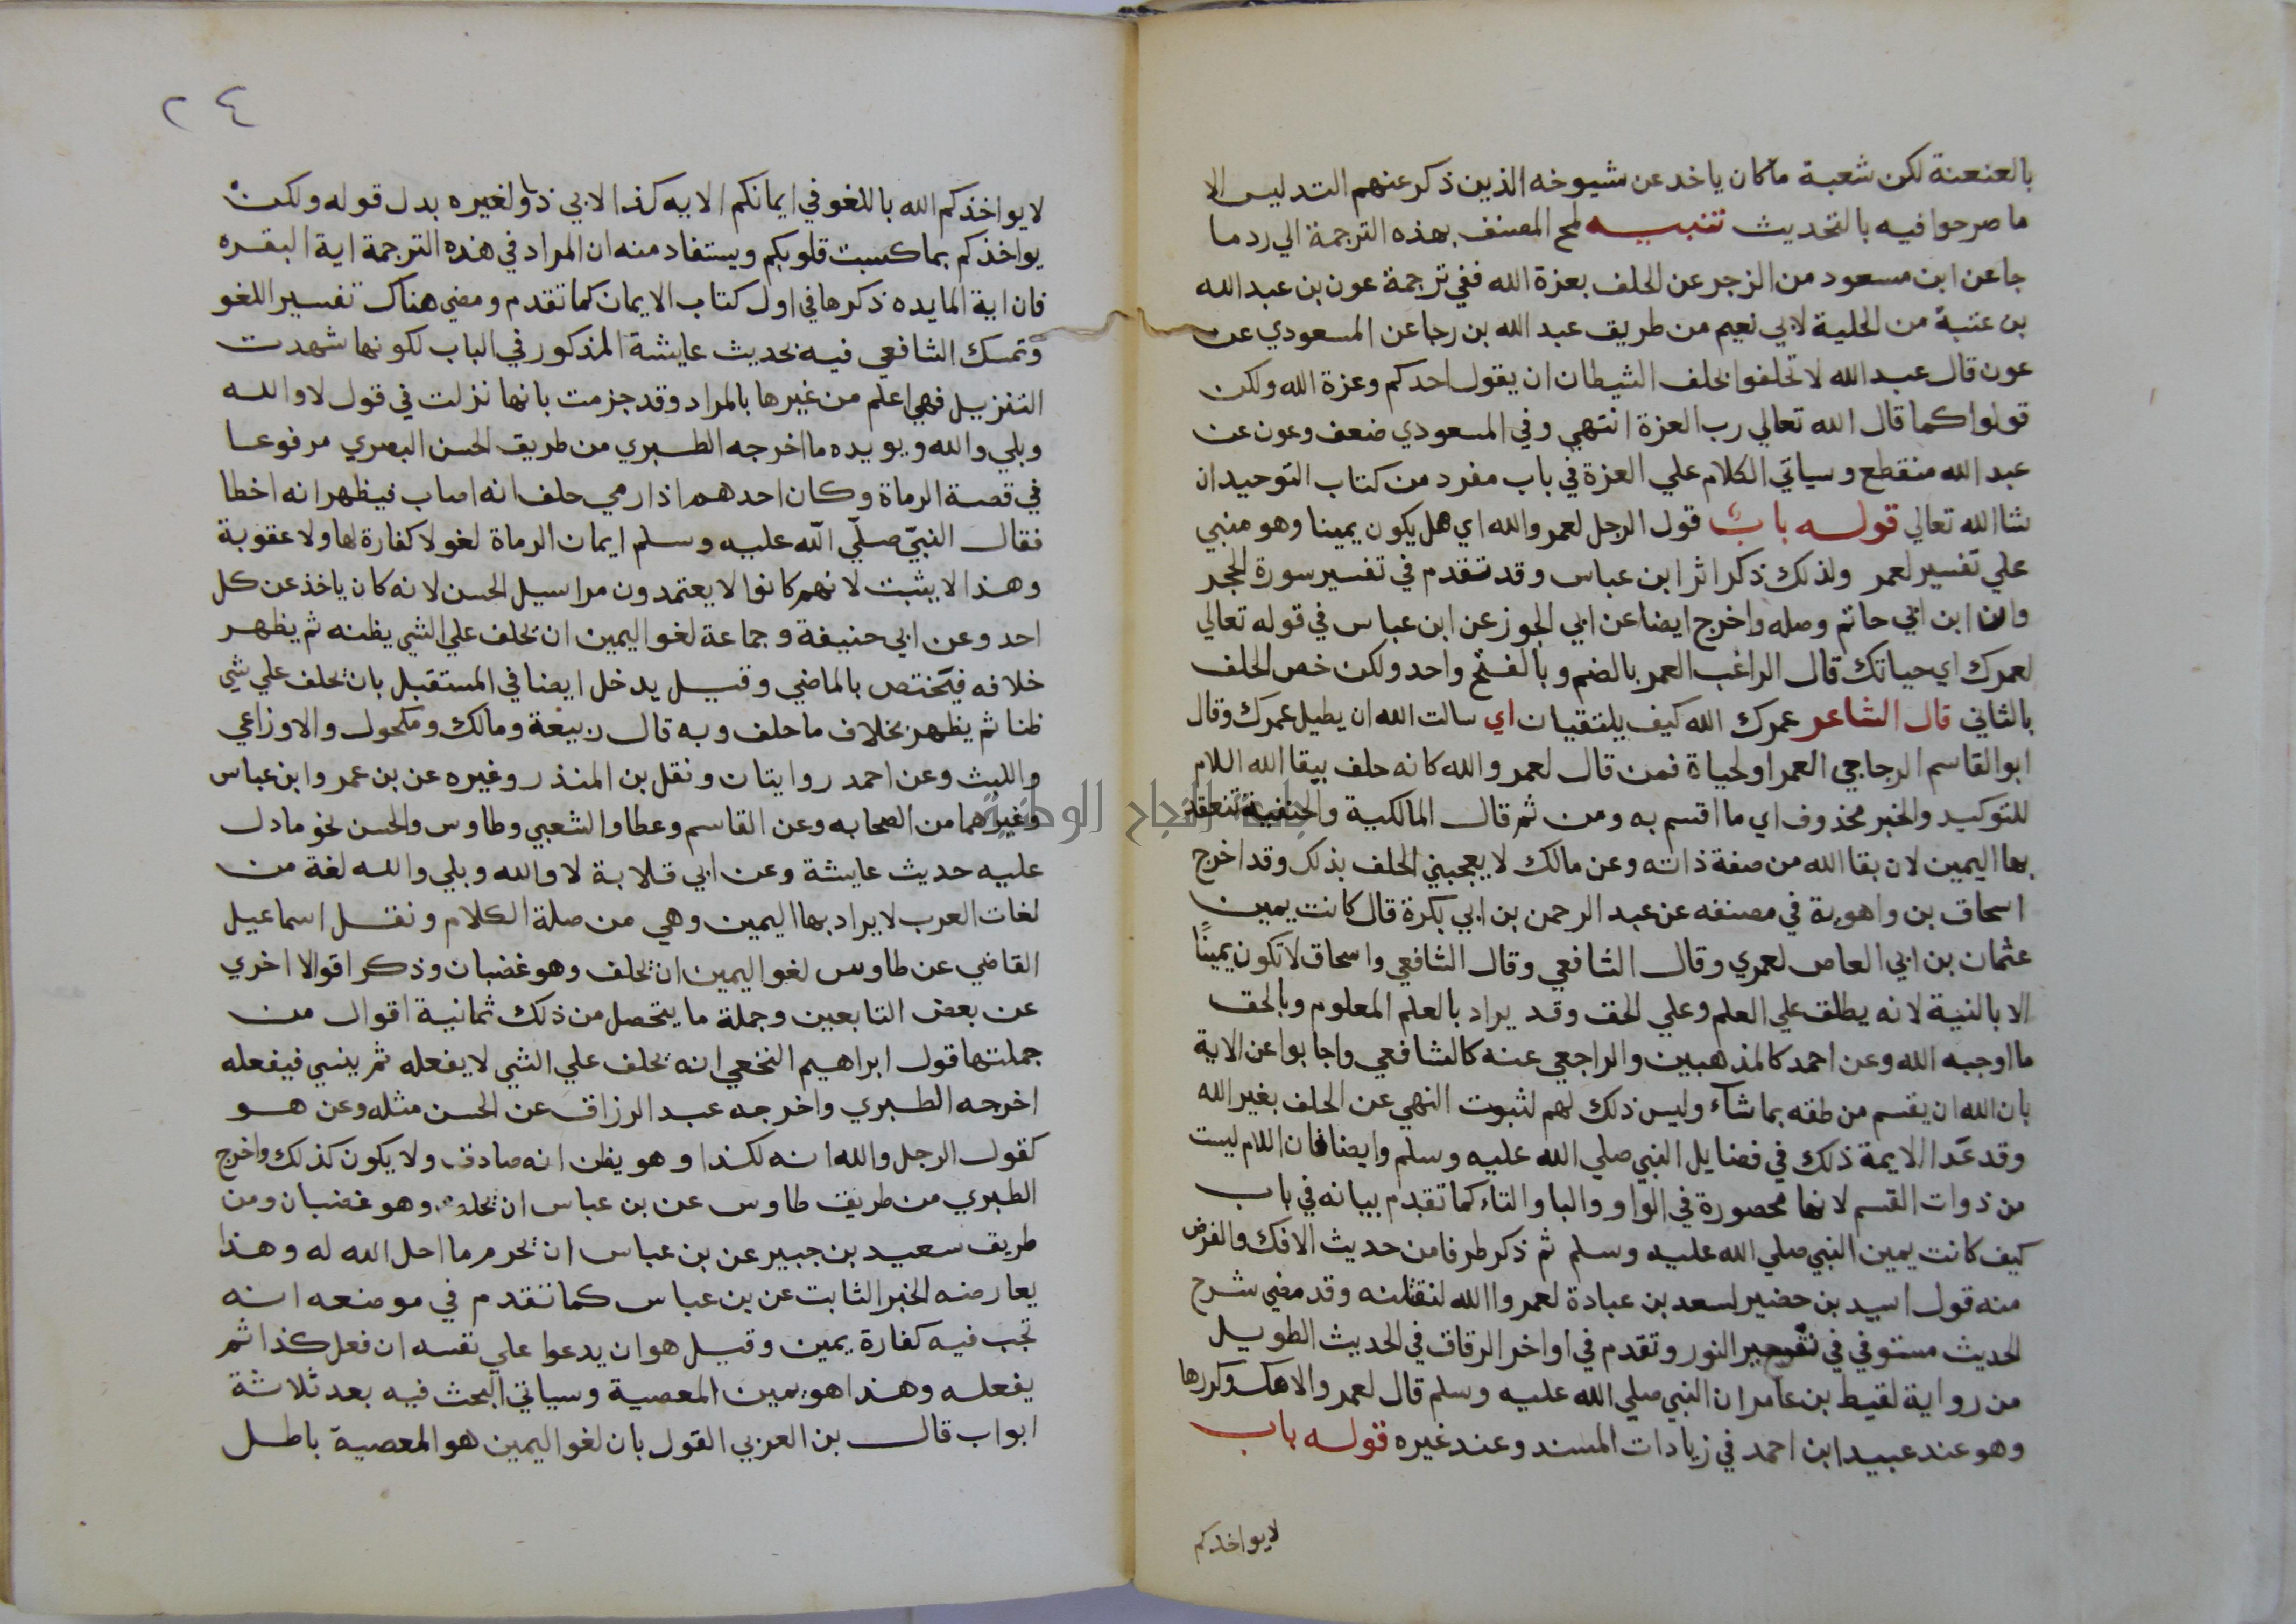 بالعنعنة لكن شعبة ماكان ياخد عن شيوخه الذين ذكر عنهم التدليس الا
ما صرحوا فيه بالتحديث تنبيه لمح المصنف بهذه الترجمة الي رد ما
جا عن ابن مسعود من الزجر عن الحلف بعزة الله ففي ترجمة عون بن عبد الله
بن عتبة من الحلية لابي نعيم من طريق عبد الله بن رجا عن المسعودي عن
عون قال عبد الله لا تحلفوا بحلف الشيطان ان يقول احدكم وعزة الله ولكن
قولوا كما قال الله تعالي رب العزة انتهي وفي المسعودي ضعف وعون عن
عبد الله منقطع وسياتي الكلام علي العزة في باب مفرد من كتاب التوحيد ان
شا الله تعالي قوله باب قول الرجل لعمر والله اي هل يكون يمينا وهو منبي
علي تفسير لعمر ولذلك ذكر اثر ابن عباس وقد تقدم في تفسير سورة الحجر
وان ابن ابي حاتم وصله واخرج ايضا عن ابي الجوز عن ابن عباس في قوله تعالي
لعمرك اي حياتك قال الراغب العمر بالضم وبالفتح واحد ولكن خص الحلف
بالثاني قال الشاعر عمرك الله كيف يلتقيان اي سالت الله ان يطيل عمرك وقال
ابو القاسم الزجاجي العمر اولحياة فمن قال لعمر والله كانه حلف ببقا الله اللام
للتوكيد والخبر محذوف اي ما اقسم به ومن ثم قال المالكية والحنفية تنعقد
بها اليمين لان بقا الله من صفة ذاته وعن مالك لا يعجبني الحلف بذلك وقد اخرج
اسحاق بن واهوية في مصنفه عن عبد الرحمن بن ابي بكرة قال كانت يمين
عثمان بن ابي العاص لعمري وقال الشافعي وقال الشافعي واسحاق لا تكون يمينًا
الا بالنية لانه يطلق علي العلم وعلي الحق وقد يراد بالعلم المعلوم وبالحق
ما اوجبه الله وعن احمد كالمذهبين والراجعي عنه كالشافعي واجابوا عن الاية
بان الله ان يقسم من طقه بما شآء وليس ذلك لهم لثبوت النهي عن الحلف بغير الله
وقد عَد الايمة ذلك في فضايل النبي صلي الله عليه وسلم وايضا فان اللام ليست
من ذوات القسم لانها محصورة في الواو والبا والتاء كما تقدم بيانه في باب
كيف كانت يمين النبي صلي الله عليه وسلم ثم ذكر طرفا من حديث الافك والغرض
منه قول اسيد بن حضير لسعد بن عبادة لعمر واالله لنقتلنه وقد مضي شرح
الحديث مستوفي في النور وتقدم في اواخر الرقاق في الحديث الطويل
من رواية لقيط بن عامر ان النبي صلي الله عليه وسلم قال لعمر والاهك وكررها
وهو عند عبيد ابن احمد في زيادات المسند وعند غيره قوله باب
لايواخدكم
٢٤
لا يواخذكم الله باللغو في ايمانكم الايه كذا لابي ذر ولغيره بدل قوله ولكن
يواخذكم بما كسبت قلوبكم ويستفاد منه ان المراد في هذه الترجمة اية البقره
فان اية المايده ذكرها في اول كتاب الايمان كما تقدم ومضي هناك تفسير اللغو
وتمسك الشافعي فيه بحديث عايشة المذكور في الباب لكونها شهدت
التنزيل فهي اعلم من غيرها بالمراد وقد جزمت بانها نزلت في قول لا والله
وبلي والله ويويده ما اخرجه الطبري من طريق الحسن البصري مرفوعا
في قصة الرماة وكان احدهم اذا رمي حلف انه اصاب فيظهر انه اخطا
فقال النبيّ صلّي الله عليه وسلم ايمان الرماة لغو لا كفارة لها ولا عقوبة
وهذا لا يثبت لانهم كانوا لا يعتمدون مراسيل الحسن لانه كان ياخذ عن كل
احد وعن ابي حنيفة وجماعة لغو اليمين ان يحلف علي الشي يظنه ثم يظهر
خلافه فيختص بالماضي وقيل يدخل ايضا في المستقبل بان يحلف علي شي
ظنا ثم يظهر بخلاف ما حلف وبه قال ربيعة ومالك ومكحول والاوزاعي
والليث وعن احمد روايتان ونقل بن المنذر وغيره عن بن عمر وابن عباس
وغيرهما من الصحابه وعن القاسم وعطا والشعبي وطاوس والحسن نحو مادل
عليه حديث عايشة وعن ابي قلابة لا والله وبلي والله لغة من
لغات العرب لا يراد بها اليمين وهي من صلة الكلام ونقل اسماعيل
القاضي عن طاوس لغو اليمين ان يحلف وهو غضبان وذكر اقوالا اخري
عن بعض التابعين وجملة ما يتحصل من ذلك ثمانية اقوال من
جملتها قول ابراهيم النخعي انه يحلف علي الشي لا يفعله ثم ينسي فيفعله
اخرجه الطبري واخرجه عبد الرزاق عن الحسن مثله وعن هو
كقول الرجل والله انه لكذا وهو يظن انه صادق ولا يكون كذلك واخرج
الطبري من طريق طاوس عن بن عباس ان يحلف وهو غضبان ومن
طريق سعيد بن جبير عن بن عباس ان يحرم ما احل الله له وهذا
يعارضه الخبر الثابت عن بن عباس كما تقدم في موضعه انه
تجب فيه كفارة يمين وقيل هو ان يدعوا علي نفسه ان فعل كذا ثم
يفعله وهذا هو يمين المعصية وسياتي البحث فيه بعد ثلاثة
ابواب قال بن العربي القول بان لغو اليمين هو المعصية باطل
جامعة النجاح الوطنية